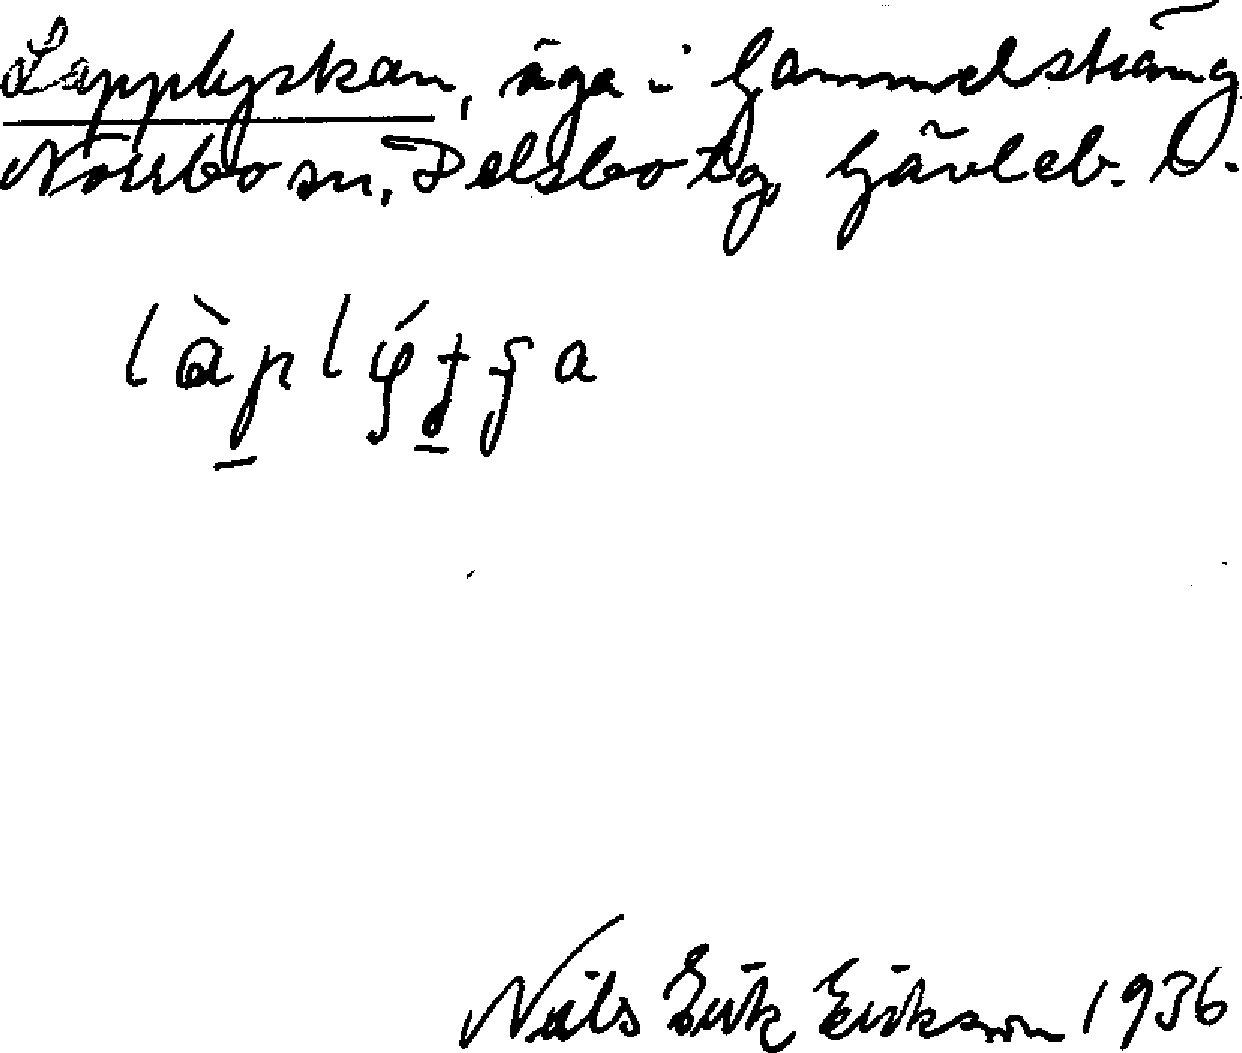 Lapplyskan, äga i Gammelsträng
Norrbo sn, Delsbo tg, Gävleb. l.
Nils Erik Eriksson 1936